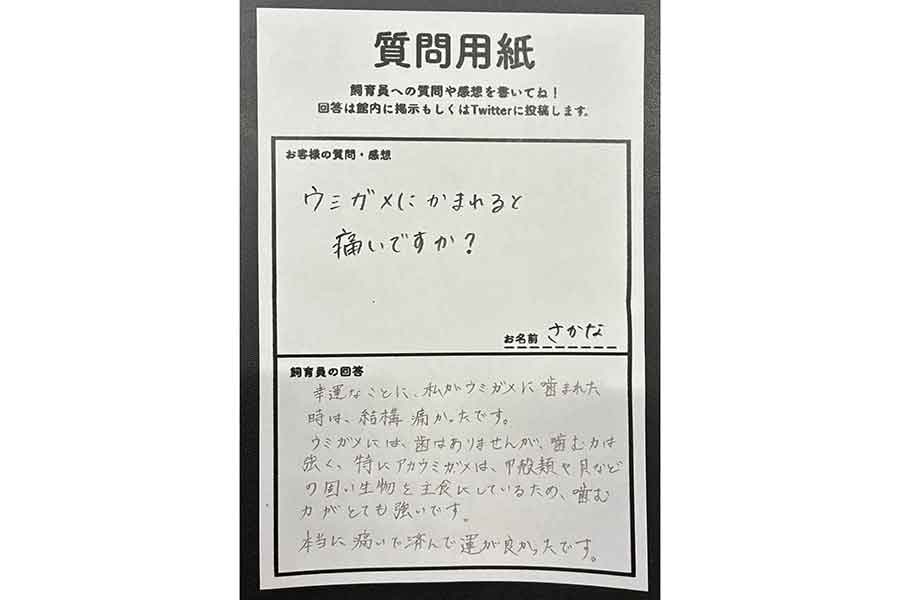 質問用紙
飼育員への質問や感想を書いてね！
回答は館内に掲示もしくはTwitterに投稿します。
お客様の質問・感想
ウミガメにかまれると
痛いですか？
お名前 さかな
飼育員の回答
幸運なことに、私がウミガメに噛まれた
時は、結構痛かったです。
ウミガメには、歯はありませんが、噛む力は
強く、特にアカウミガメは、甲殻類や貝など
の固い生物を主食にしているため、噛む
力がとても強いです。
本当に痛いで済んで運が良かったです。